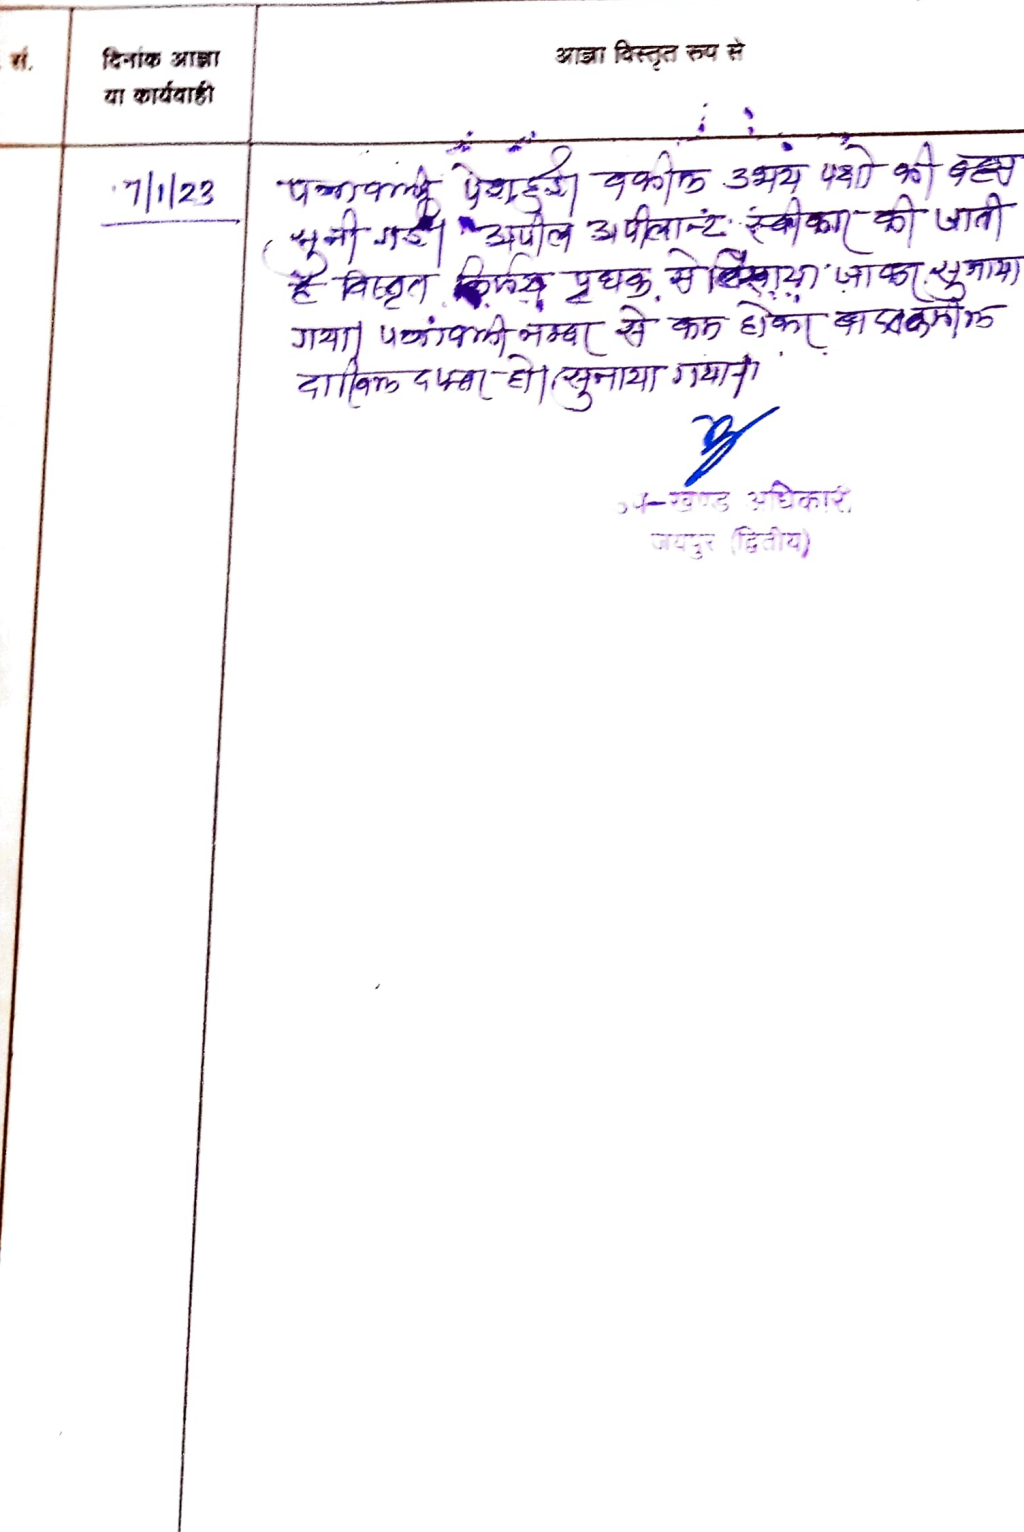 सं.
दिनांक आज्ञा
या कार्यवाही
आज्ञा विस्तृत रूप से
7/1/23
पत्रावली पेश हुई। वकील उभय पक्षो की बहस
सुनी गई। अपील अपीलान्ट स्वीकार की जाती
है विस्तृत निर्णय पृथक से लिखाया जाकर सुनाया
गया। पत्रावली नम्बर से कम होकर बाद तकमील
दाखिल दफ्तर हो। सुनाया गया।
उप-खण्ड अधिकारी
जयपुर (द्वितीय)